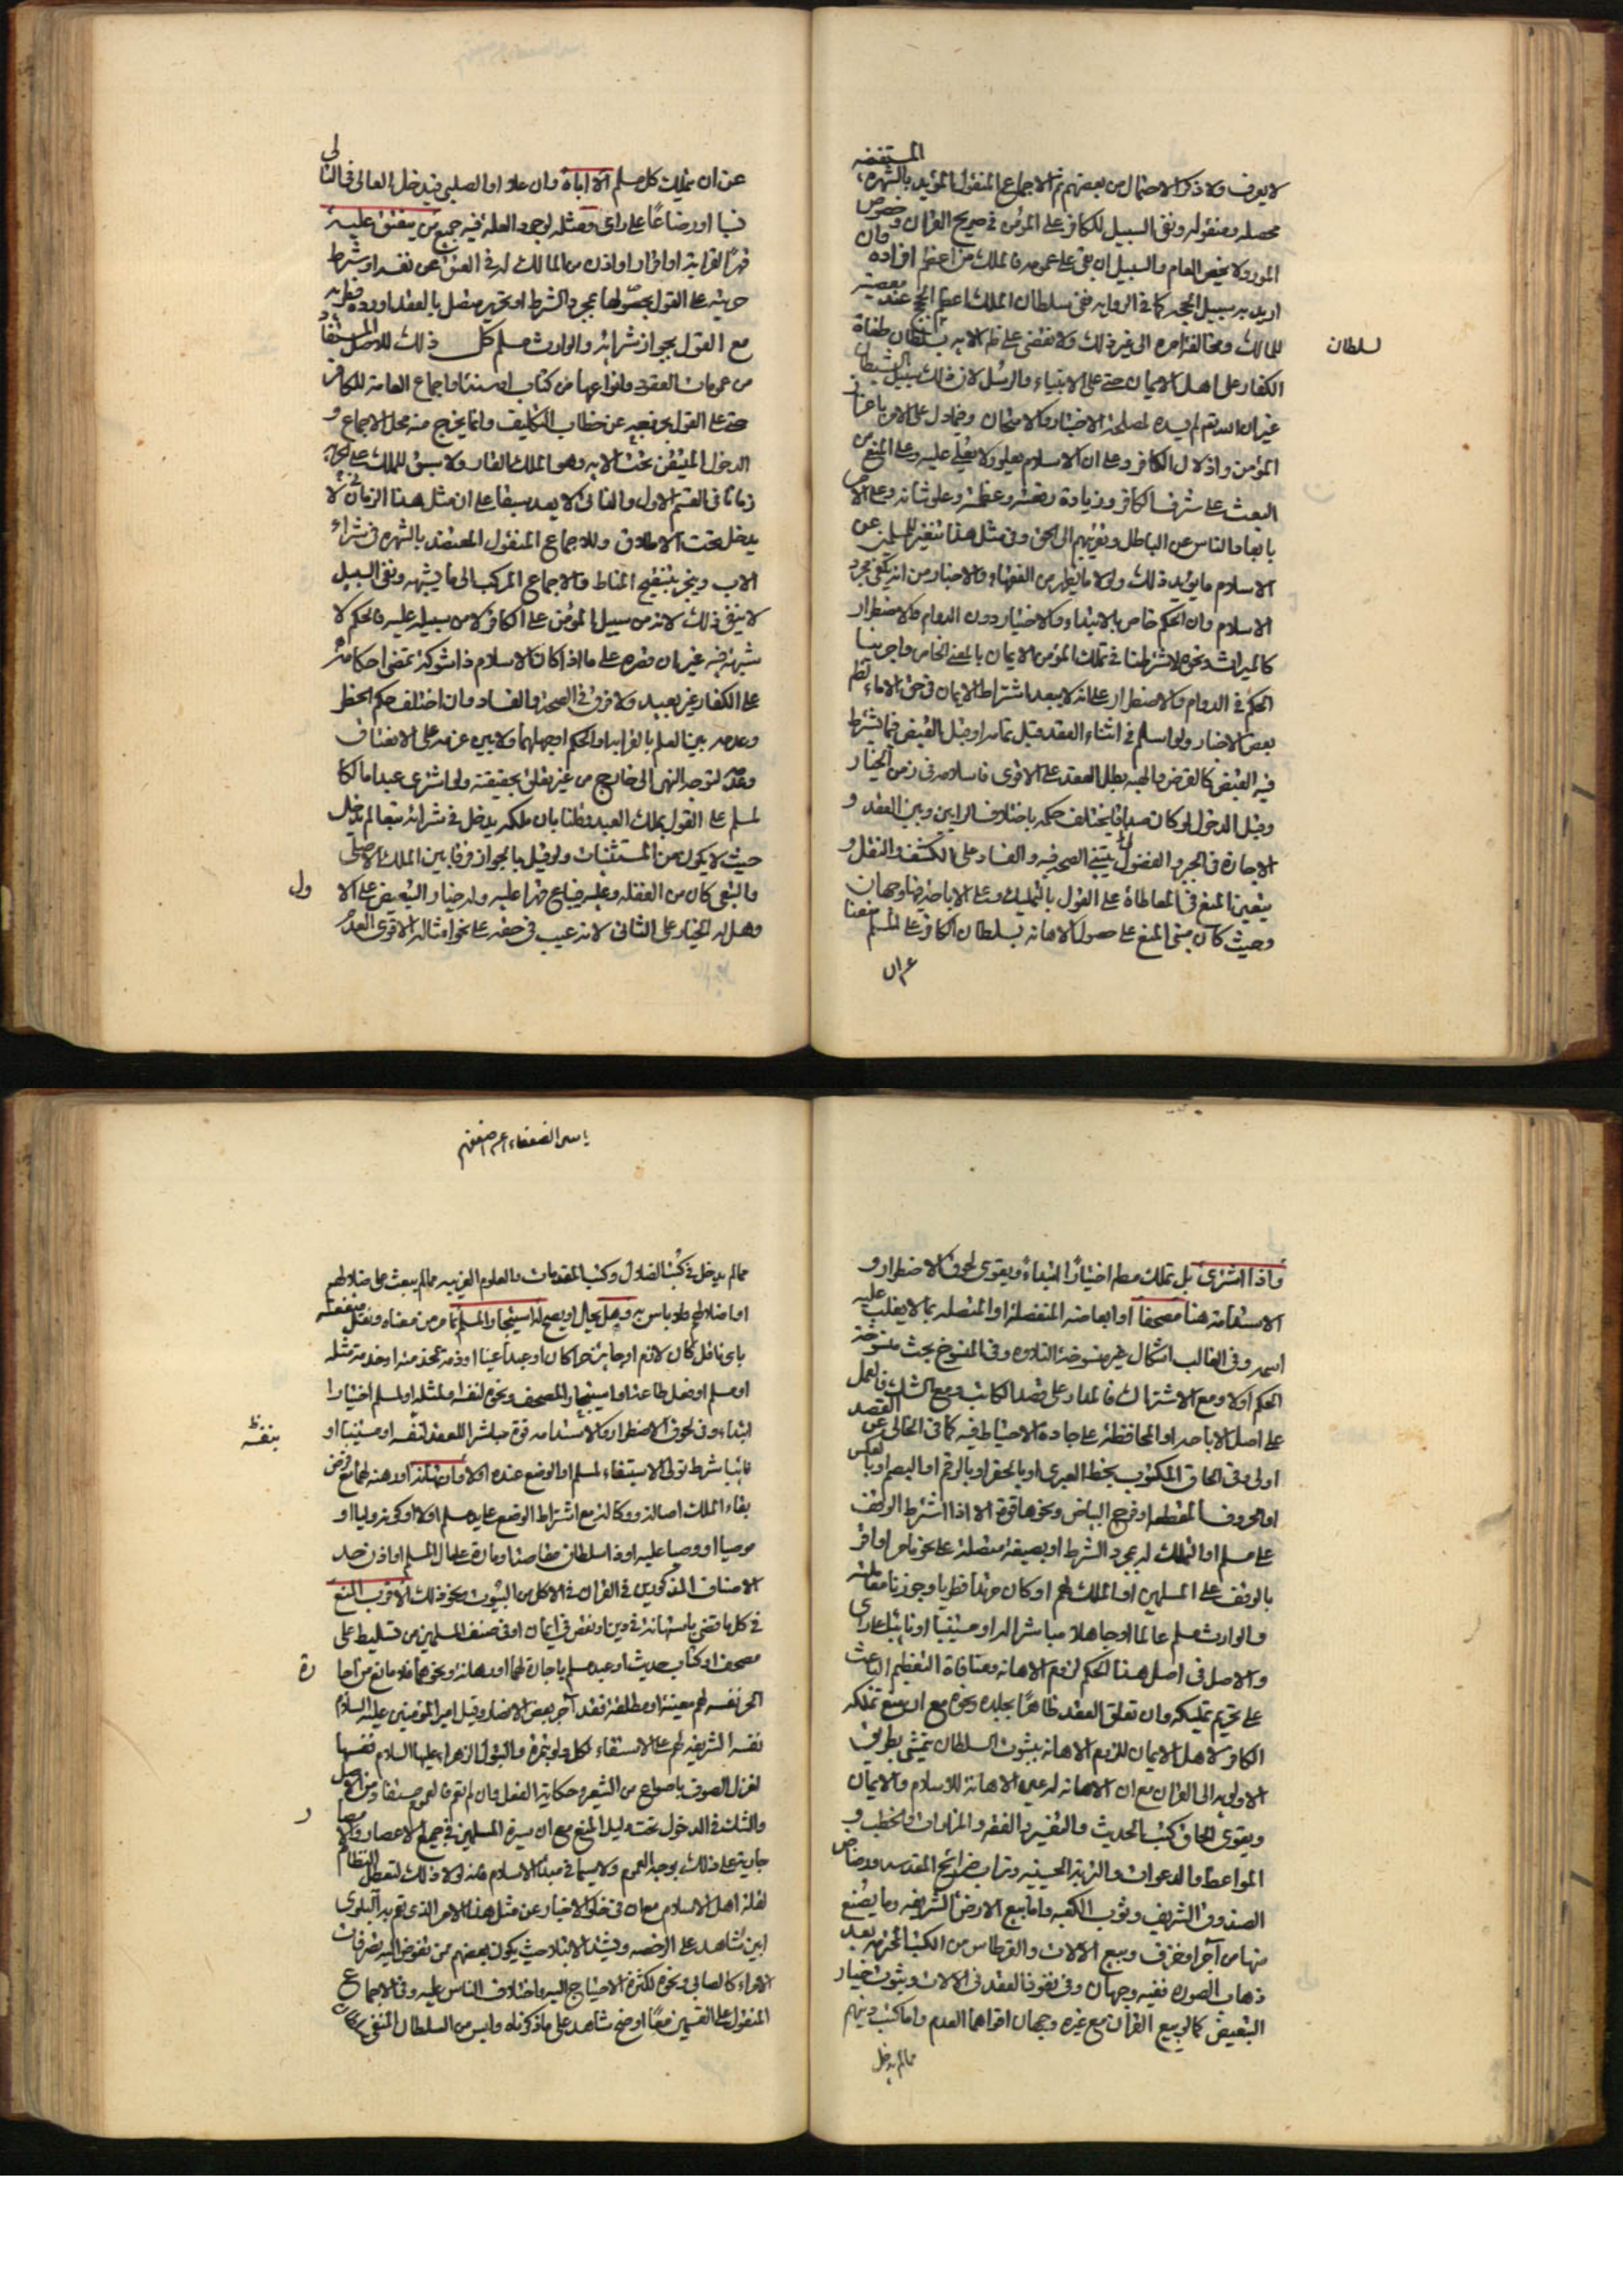 لا يعرف ولا ذكر الاحتمال من بعضهم ثم الاجماع المنقول المؤيد بالشهرة المستفيضة
محصله ومنقوله ونفى السبيل للكافر على المؤمن في صريح القران وخصوص
المورد لا يخص العام والسبيل ان بقى على عمومه فالملك من اعظم افراده وان
اريد به سبيل الحجه كما في الروايه ففى سلطان الملك اعظم الحجج عند معصية
للمالك ومخالفة امره الى غير ذلك ولا نقض على ظم الايه بسلطان طغاة
سلطان
الكفار على اهل الايمان حتى على الانبياء والرسل لان ذلك سبيل الشيطان
غير ان الله تعم لم يسده لمصلحة الاختبار والامتحان وفيما دل على الامر باعزاز
المؤمن واذلال الكافر وعلى ان الاسلام يعلو ولا يعلى عليه وعلى المنع من
البعث على شرف الكافر وزيادة رفعته وعظمته وعلو شانه وعلى الامر
بابعاد الناس عن الباطل وتقريبهم الى الحق وفي مثل هذا تنفير للمسلمين عن
الاسلام ما يؤيد ذلك ولولا ما يظهر من الفقهاء والاخبار من انه يكفى مجرد
الاسلام وان الحكم خاص بالابتداء والاختيار دون الدوام والاضطرار
كالميراث ونحوه لاشترطنا في تملك المؤمن الايمان بالمعنى الخاص واجرينا
الحكم في الدوام والاضطرار على انه لا يبعد اشتراط الايمان في حق الاماء لظم
بعض الاخبار ولو اسلم في اثناء العقد قبل تمامه او قبل القبض فيما يشترط
فيه القبض كالقرض والهبه بطل العقد على الاقوى فاسلامه في زمن الخيار
وقبل الدخول لو كان صداقا يختلف حكمه باختلاف الرايين وبين العقد و
الاجازة في الجبر والفضولى يبتنى الصحه فيه والفساد على الكشف والنقل و
يتعين المنع في المعاطاة على القول بالتمليك وعلى الاباحة فيها وجهان
وحيث كان مبنى المنع على حصول الاهانه بسلطان الكافر على المسلم منعنا
عن ان
عن ان يملك كل مسلم الا اباه وان علا او الصلبى فيدخل العالى في التالى
نسبا او رضاعا على راى ومثله لوجود العلة فيه جميع من ينعتق عليه
قهرا لقرابة او اقرار او اذن من المالك له في العتق عن نفسه او شرط
حريته على القول بحصولها بمجرد الشرط او تحرير متصل بالعقد او رده فطريه
مع القول بجواز شرائه والوارث مسلم كل ذلك للاصل المستفاد
من عمومات العقود وانواعها من كتاب او سنة او اجماع العامة للكافر
حتى على القول بخروجه عن خطاب التكليف وانما يخرج منه محل الاجماع و
الدخول المتيقن تحت الايه وهو الملك القار ولا سبق للملك على الحرية
زمانا في القسم الاول والثانى لا يعد سبقا على ان مثل هذا الزمان لا
يدخل تحت الاطلاق وللاجماع المنقول المعتضد بالشهره في شراء
الاب ويجر بتنقيح المناط والاجماع المركب الى ما يشبهه ونفى السبيل
لا ينفى ذلك لانه من سبيل المؤمن على الكافر لا من سبيله عليه والحكم لا
شبهة فيه غير ان قصره على ما اذا كان الاسلام ذا شوكة تمضى احكامه
على الكفار غير بعيد ولا فرق في الصحة والفساد وان اختلف حكم الحظر
وعدمه بين العلم بالقرابه او الحكم او جهلهما ولا بين عزمه على الاعتاف
وعدمه لتوجه النهى الى خارج من غير تعلق بحقيقته ولو اشترى عبدا مالكا
لمسلم على القول بملك العبد وقلنا بان ملكه يدخل في شرائه تبعا لم يدخل
حيث لا يكون من المستثنيات ولو قيل بالجواز فرقا بين الملك الاصلى
والتبعى كان من الغفله وعليه فيباع قهرا عليه وله خيار التبعيض على الا
ول
وهل له الخيار على الثانى لانه عيب في حقه على نحو امثاله الاقوى العدم
واذا اشترى بل تملك مطم اختيارا ابتداء ويقوى لحوق الاضطرار و
الاستدامة هنا مصحفا او ابعاضه المنفصلة او المتصله بما لا يغلب عليه
اسمه وفي الغالب اشكال غير منسوخة التلاوه وفي المنسوخ بحث منسوخة
الحكم اولا ومع الاشتراك فالمدار على قصد الكاتب ومع الشك في القصد فالعمل
على اصل الاباحه او المحافظة على جادة الاحتياط فيه كما في الخالى عن
اولى وفي الحاق المكتوب بخط العبرى او بالحفر او بالرقم او البصم او بالعكس
او الحروف المقطعه او فرج البياض ونحوها قوة الا اذا اشترط الوقف
على مسلم او التملك له بمجرد الشرط او بصيغة متصلة على نحو ما مر او اقر
بالوقف على المسلمين او الملك لهم او كان مرتدا فطريا وجوزنا معاملته
والوارث مسلم عالما او جاهلا مباشرا له او مستنيبا او نائبا على راى
والاصل في اصل هذا الحكم لزوم الاهانه ومنافاة التعظيم الباعث
على تحريم تمليكه وان تعلق العقد ظاهرا بجلده ونحوه مع ان منع تملكه
الكافر لاهل الايمان للزوم الاهانه بثبوت السلطان يتمشى بطريق
الاولويه الى القران مع ان الاهانة له عين الاهانة للاسلام والايمان
ويقوى الحاق كتب الحديث والتفسير والفقه والمزارات والخطب و
المواعظ والدعوات والتربة الحسينيه وتراب ضرائح المقدسه ورصاص
الصندوق الشريف وثوب الكعبه واما بيع الارض الشريفه وما يصنع
منها من آجر او خزف وبيع الالات والقرطاس من الكتب المحترمه بعد
ذهاب الصوره ففيه وجهان وفي نفوذ العقد في الالات وثبوت خيار
التبعيض كما لو بيع القران مع غيره وجهان اقواهما العدم واما كتب دينهم
مما لم يدخل
مما لم يدخل في كتب الضلال وكتب المقدمات والعلوم الغريبه مما لم يبعث على ضلالهم
او اضلالهم فلا باس به وهل يحال او يصح له استيجار المسلم بما مر من معناه ونقل منفعته
باى ناقل كان لازم او جايز حرا كان او عبدا عينا او ذمة لخدمته او خدمة مثله
او مسلم او فعل طاعة او استيجار المصحف ونحوه لنفسه او لمثله او لمسلم اختيارا
ابتداء وفي لحوق الاضطرار والاستدامه قوة مباشرا للعقد لنفسه او مستنيبا او
بنفسه
نائبا شرط تولى الاستيفاء لمسلم او الوضع عنده اولا وان تهانه او رهنه لهما مع فرض
بقاء الملك اصالة ووكالة مع اشتراط الوضع على يد مسلم اولا او كونه وليا او
موصيا او وصيا عليه او ذا سلطان مقاصا او مارة على مال المسلم او اذن احد
الاصناف المذكورين في القران في الاكل من البيوت ونحو ذلك الاقرب المنع
في كل ما قضى باستهانة في دين او نقص في ايمان او في صنف المسلمين من تسليط على
مصحف او كتاب حديث او عبد مسلم باجارة لهما او رهانة ونحوهما فلا مانع من اجا
رة
الحر نفسه لهم معينة او مطلقة فقد آجر بعض الانصار وقيل امير المؤمنين عليه السلام
نفسه الشريفه لهم على الاستقاء لكل دلو بتمره والبتول الزهراء عليها السلام نفسها
لغزل الصوف باصواع من الشعير وحكاية الفعل وان لم تقم فالعموم مستفاد من الاصل
والشك في الدخول تحت دليل المنع مع ان سيرة المسلمين في جميع الاعصار والامصا
ر
جارية على ذلك بوجه العموم ولا سيما في مبدا الاسلام فانه لولا ذلك لتعطل النظام
لقلة اهل الاسلام مع ان في خلو الاخبار عن مثل هذا الامر الذى تعم به البلوى
ابين شاهد على الرخصه
المنقول على القسمين معا اوضح شاهد على ما ذكرناه وليس من السلطان المنفى